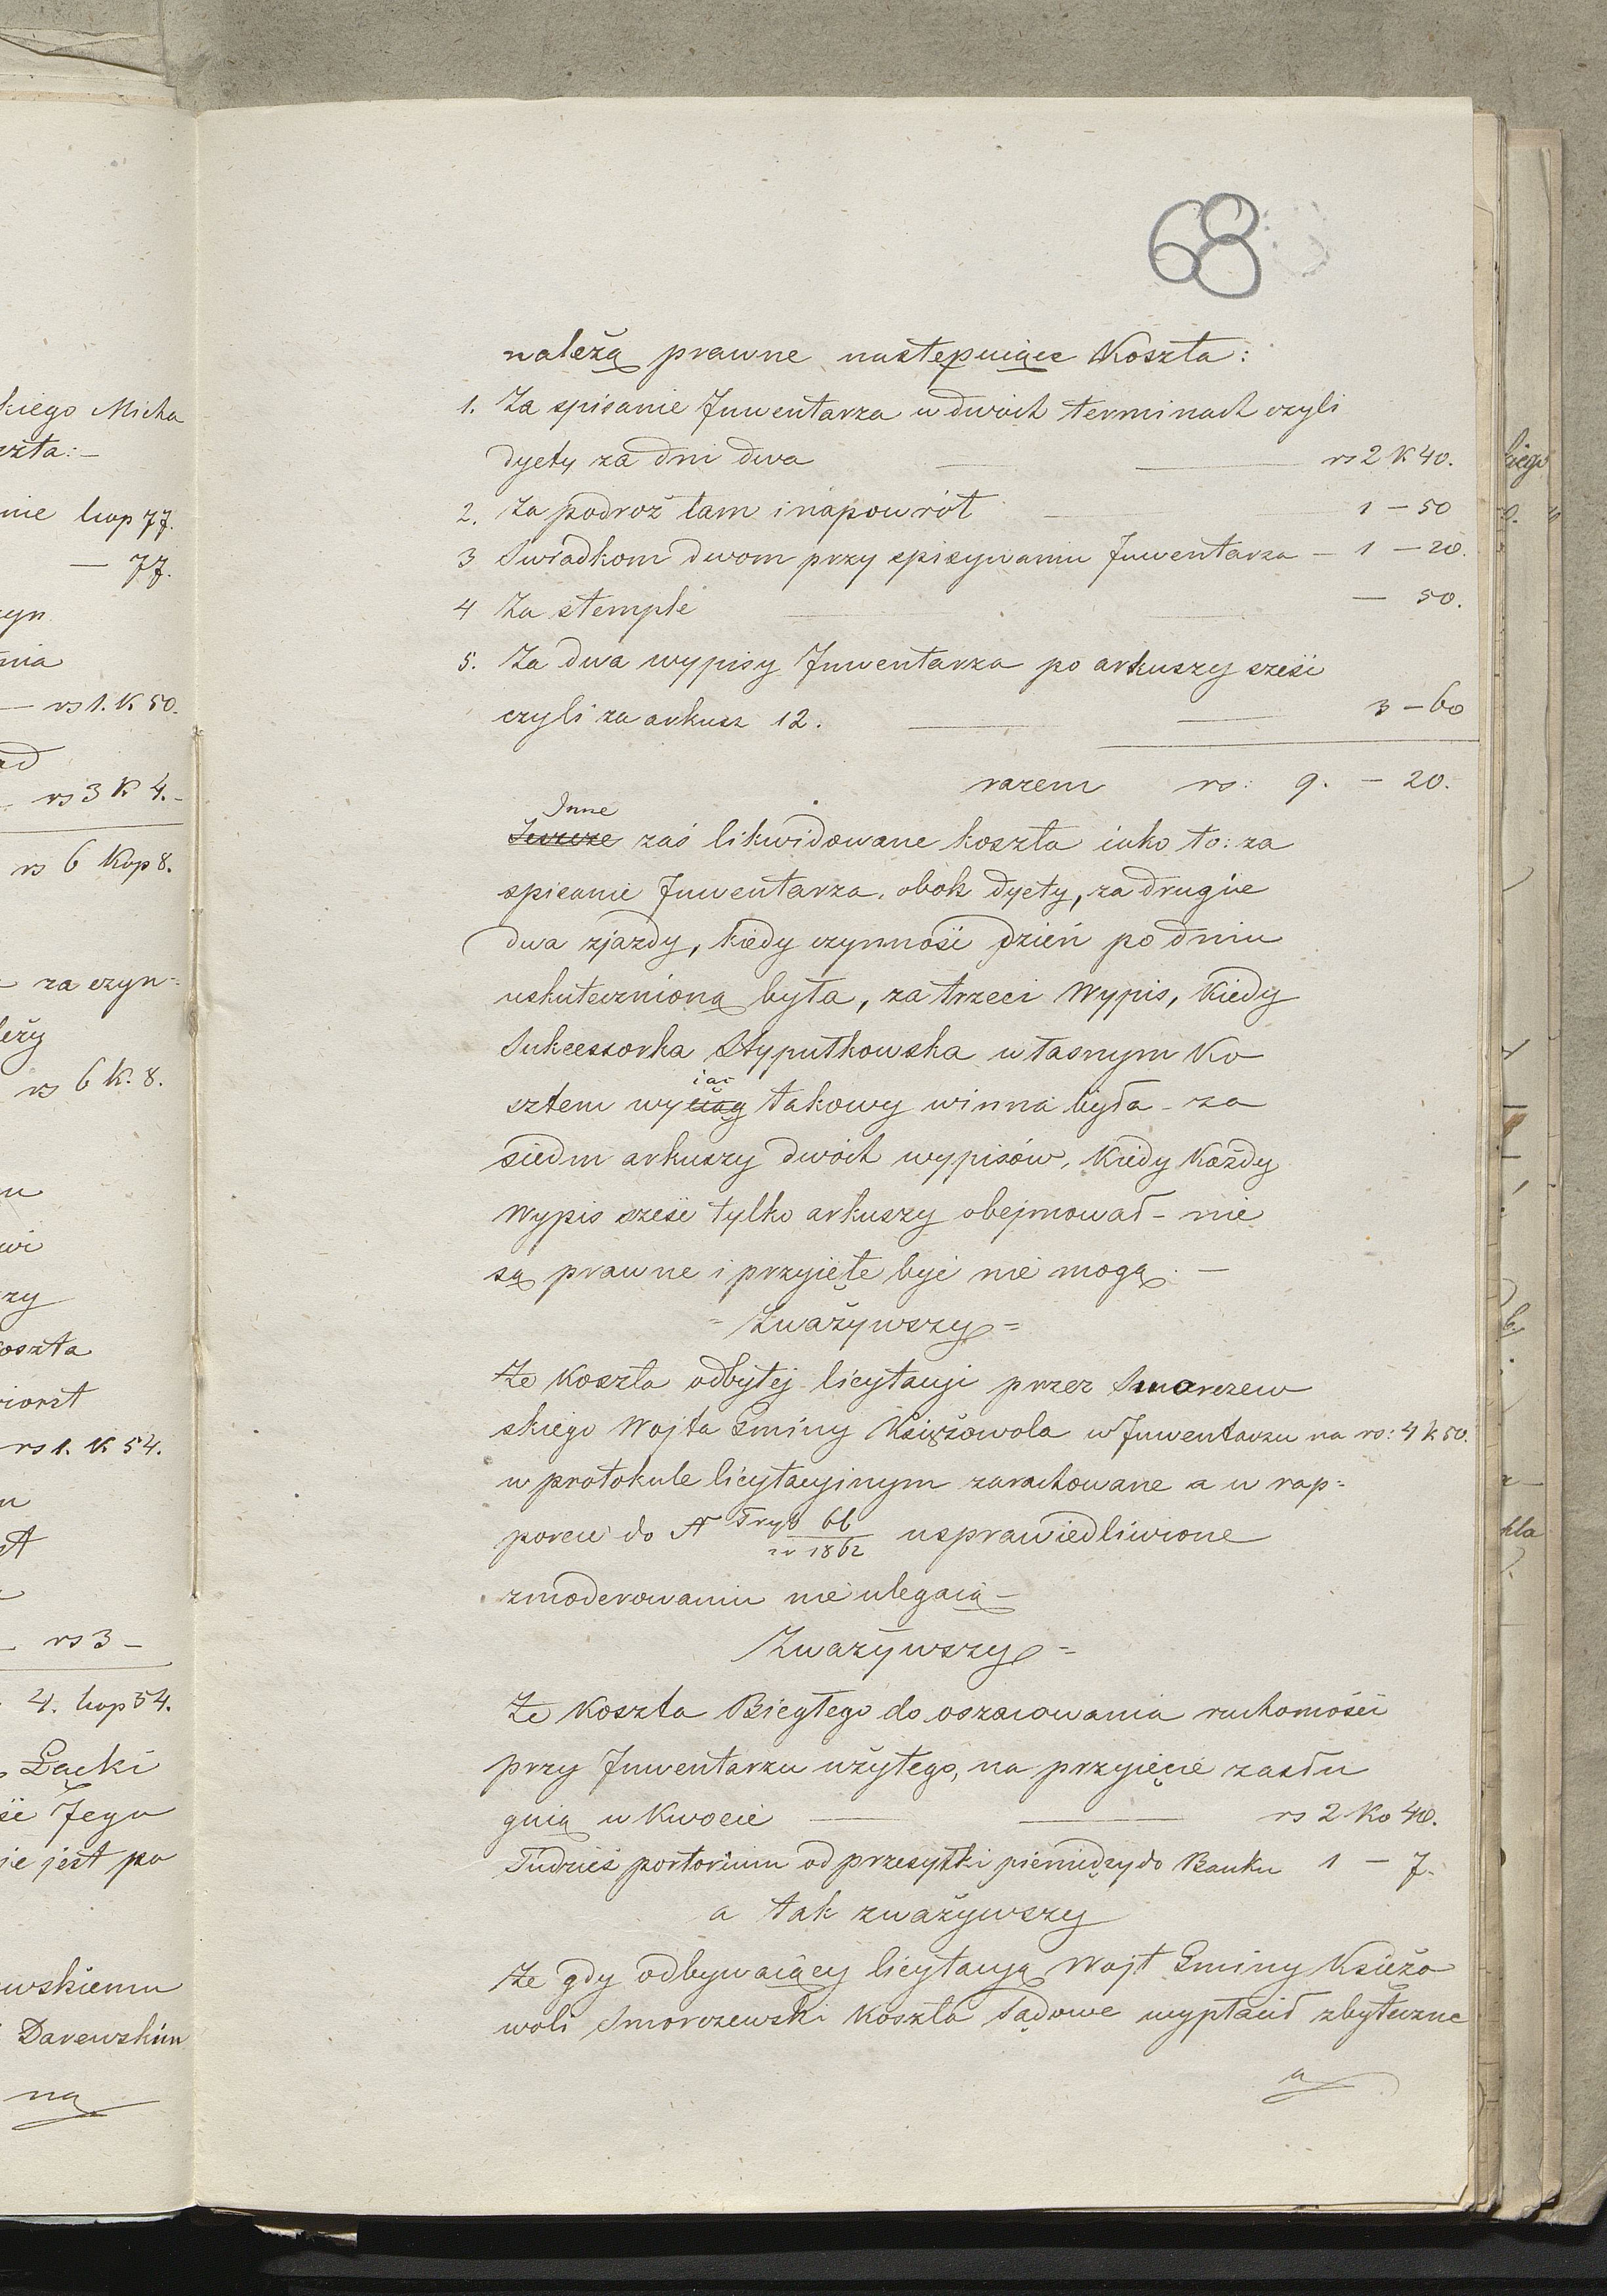 kiego Micha
szta:-
nie kop 77.
— 77.
nia
— rs 1. K 50.
rs 3 K 4.-
rs 6 Kop 8.
za czyn-
leży
rs 6 K. 8.
zy
koszta
rs 1. K 54.
rs 3 —
4. kop 54.
Łącki
Jego
jest po
wskiemu
Darewskim
na
68
należą prawne następuiące Koszta:
1. Za spisanie Juwentarza w dwóch terminach czyli
dyety za dni dwa — — rs 2 K 40.
2. Za podroż tam i napowrót — 1 — 50
3 Swiadkom dwom przy spisywaniu Juwentarza — 1 — 20.
4 Za stemple — — — 50.
5. Za dwa wypisy Juwentarza po arkuszy sześć
czyli za arkusz 12. — — 3 — 60
razem rs: 9. — 20.
Inne
Jeszcze zaś likwidowane koszta iako to: za
spisanie Juwentarza, obok dyety, za drugie
dwa zjazdy, kiedy czynność dzień po dniu
uskutecznioną była, za trzeci Wypis, Kiedy
Sukcessorka Stypułkowska własnym Ko
iąć
sztem wyciąg takowy winna była — za
siedm arkuszy dwóch wypisów, Kiedy Każdy
Wypis sześć tylko arkuszy obejmował — nie
są prawne i przyięte być nie mogą. —
= Zważywszy =
Że Koszta odbytej licytacyi przez Smorczew
skiego Wojta Gminy Księżowola w Juwentarzu na rs: 4 k 50.
w protokule licytacyinym zarachowane a w rap-
porcie do N Tryb 66
z r 1862 usprawiedliwione
zmoderowaniu nie ulegaią —
Zważywszy =
Że Koszta Biegłego do oszacowania ruchomości
przy Juwentarzu użytego, na przyięcie zasłu
guią w Kwocie — — rs 2 Ko 40.
Tudzież portorium od przesyłki pieniędzy do Banku 1 — 7.
a tak zważywszy
Że gdy odbywaiący licytacyą Wojt Gminy Księżo
woli Smorczewski Koszta Sądowe wypłacił zbyteczne
a